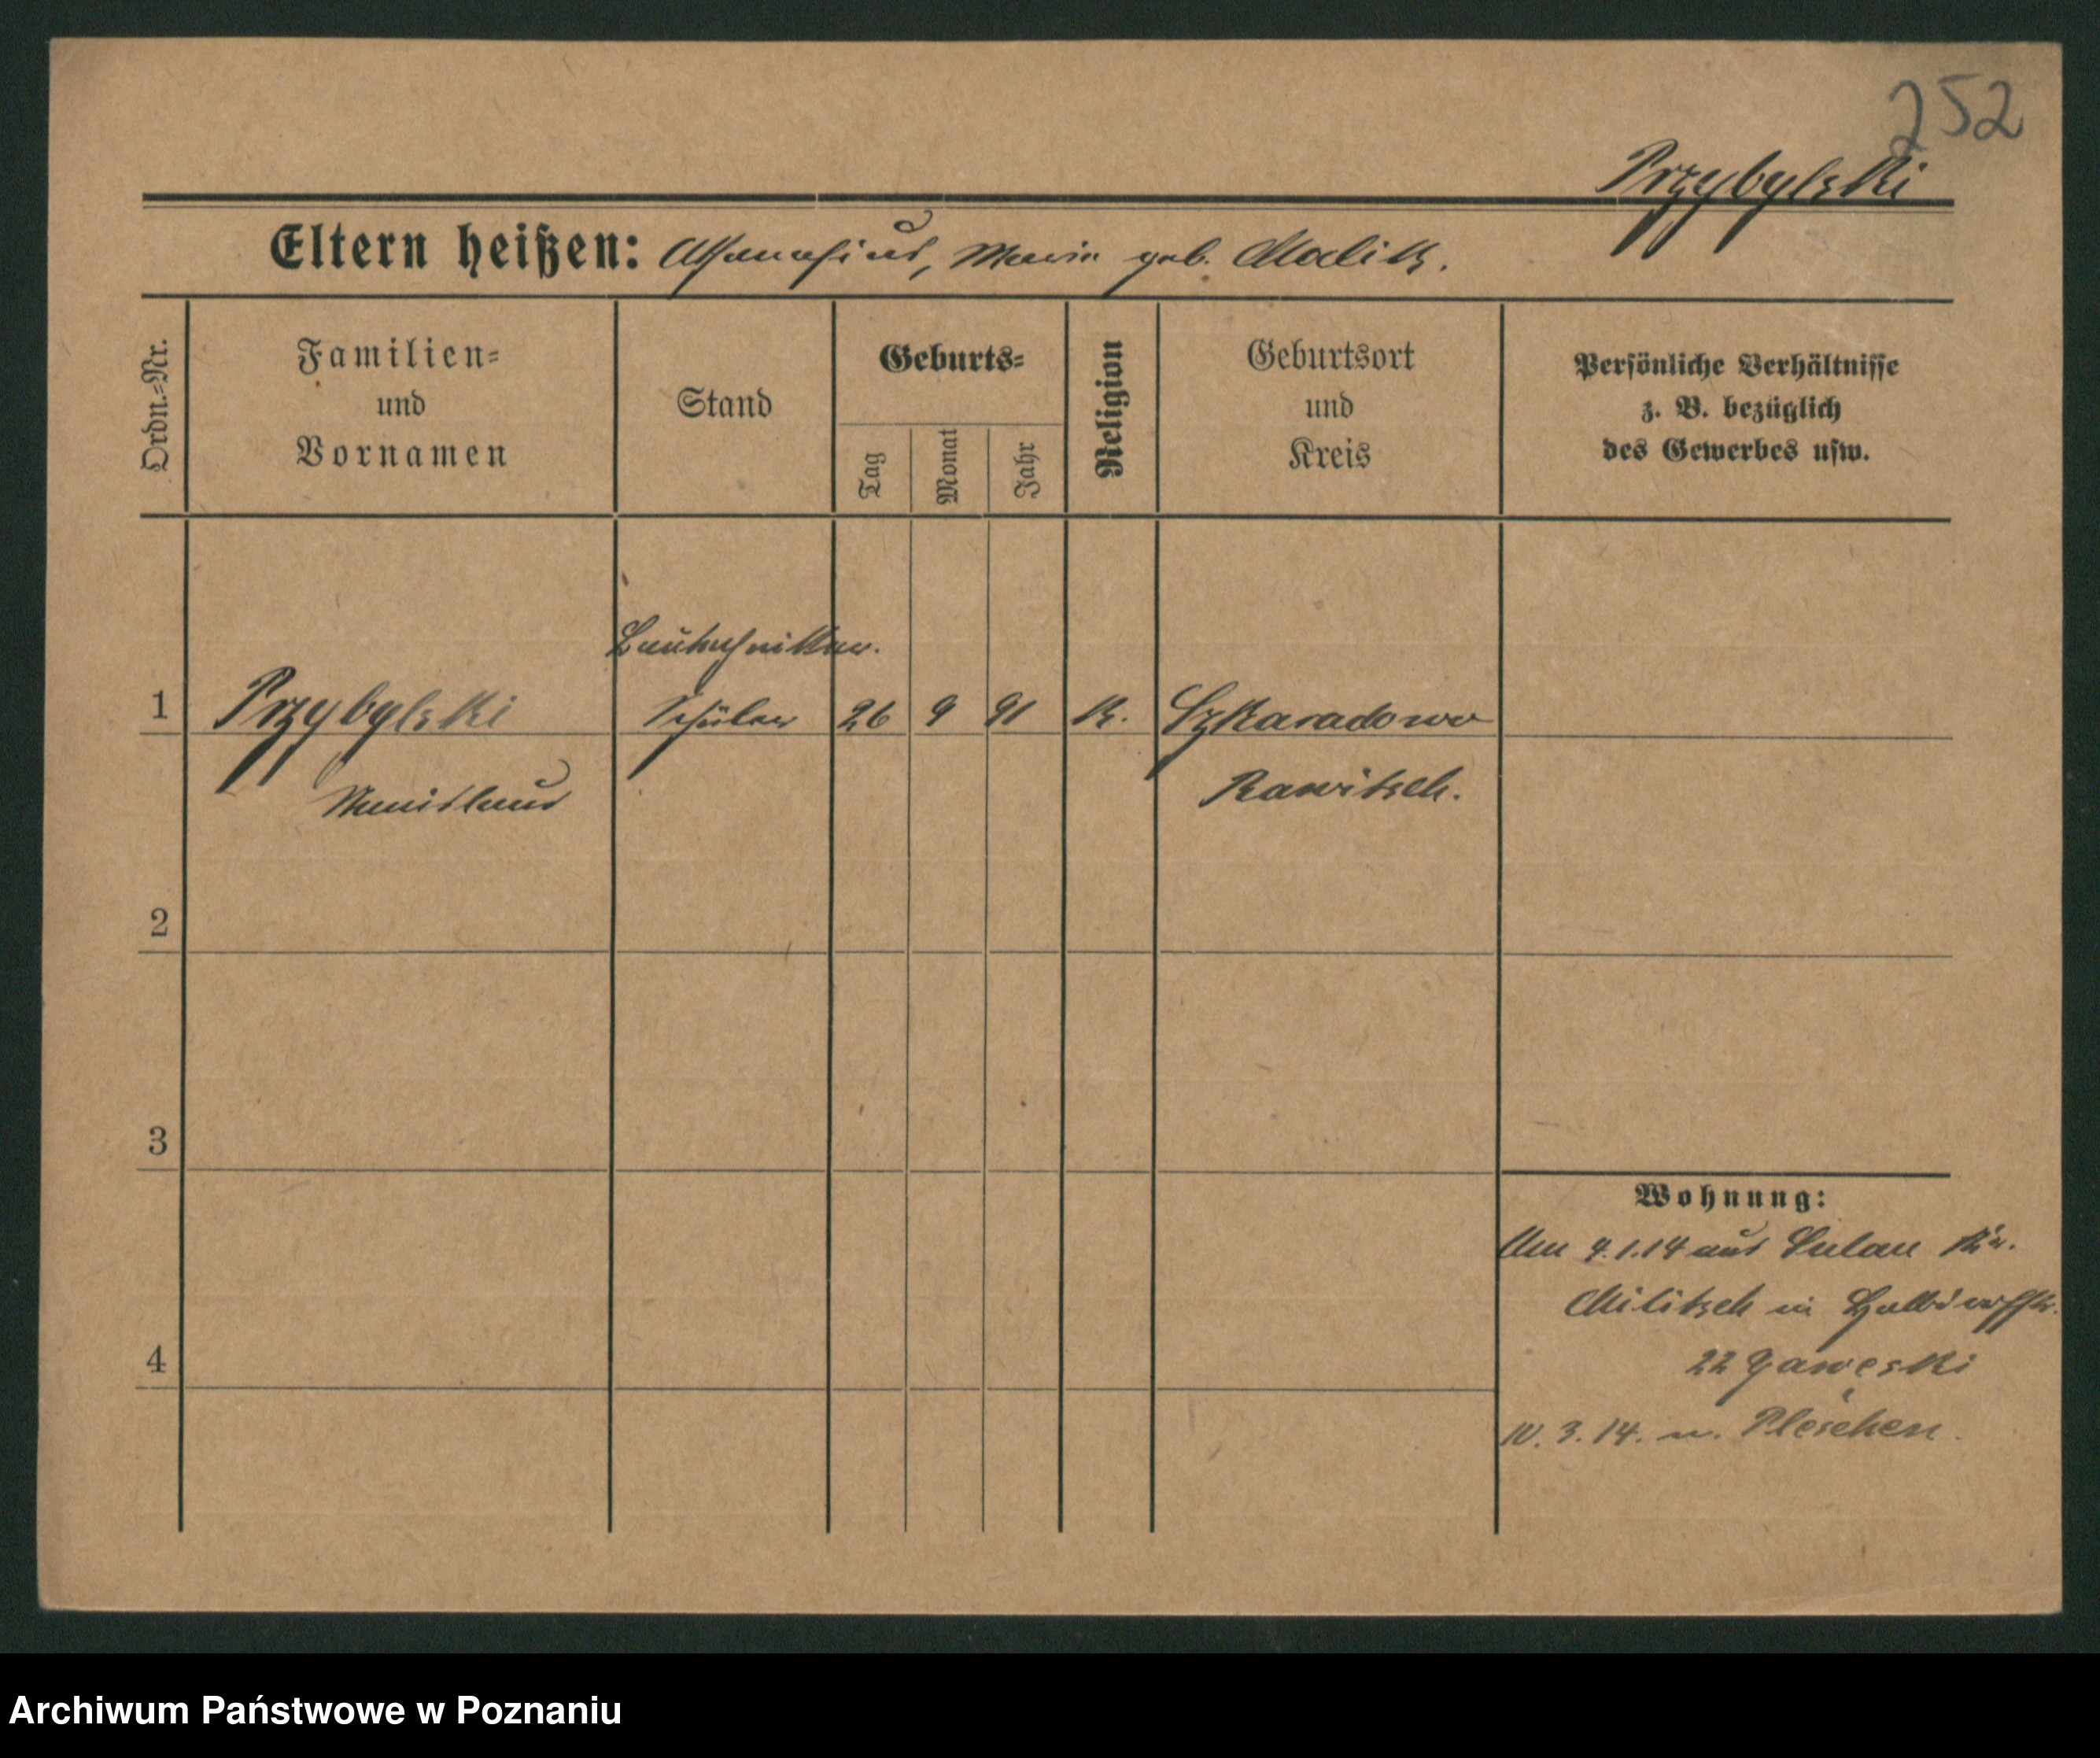 252
Przybylski
Eltern heißen: Athanasius, Maria geb. Malik.
Ordn.-Nr.
Familien-
und
Vornamen
Stand
Geburts-
Tag
Monat
Jahr
Religion
Geburtsort
und
Kreis
Persönliche Verhältnisse
z. B. bezüglich
des Gewerbes usw.
Bautechniker.
1 Przybylski Schüler 26 9 91 K. Szkaradowo
Stanislaus Rawitsch.
2
3
4
Wohnung:
Am 4.1.14 aus Sulau Kr.
Militsch in Halbdorfstr.
22 Gawęski
10. 3. 14. n. Pleschen.
Archiwum Państwowe w Poznaniu